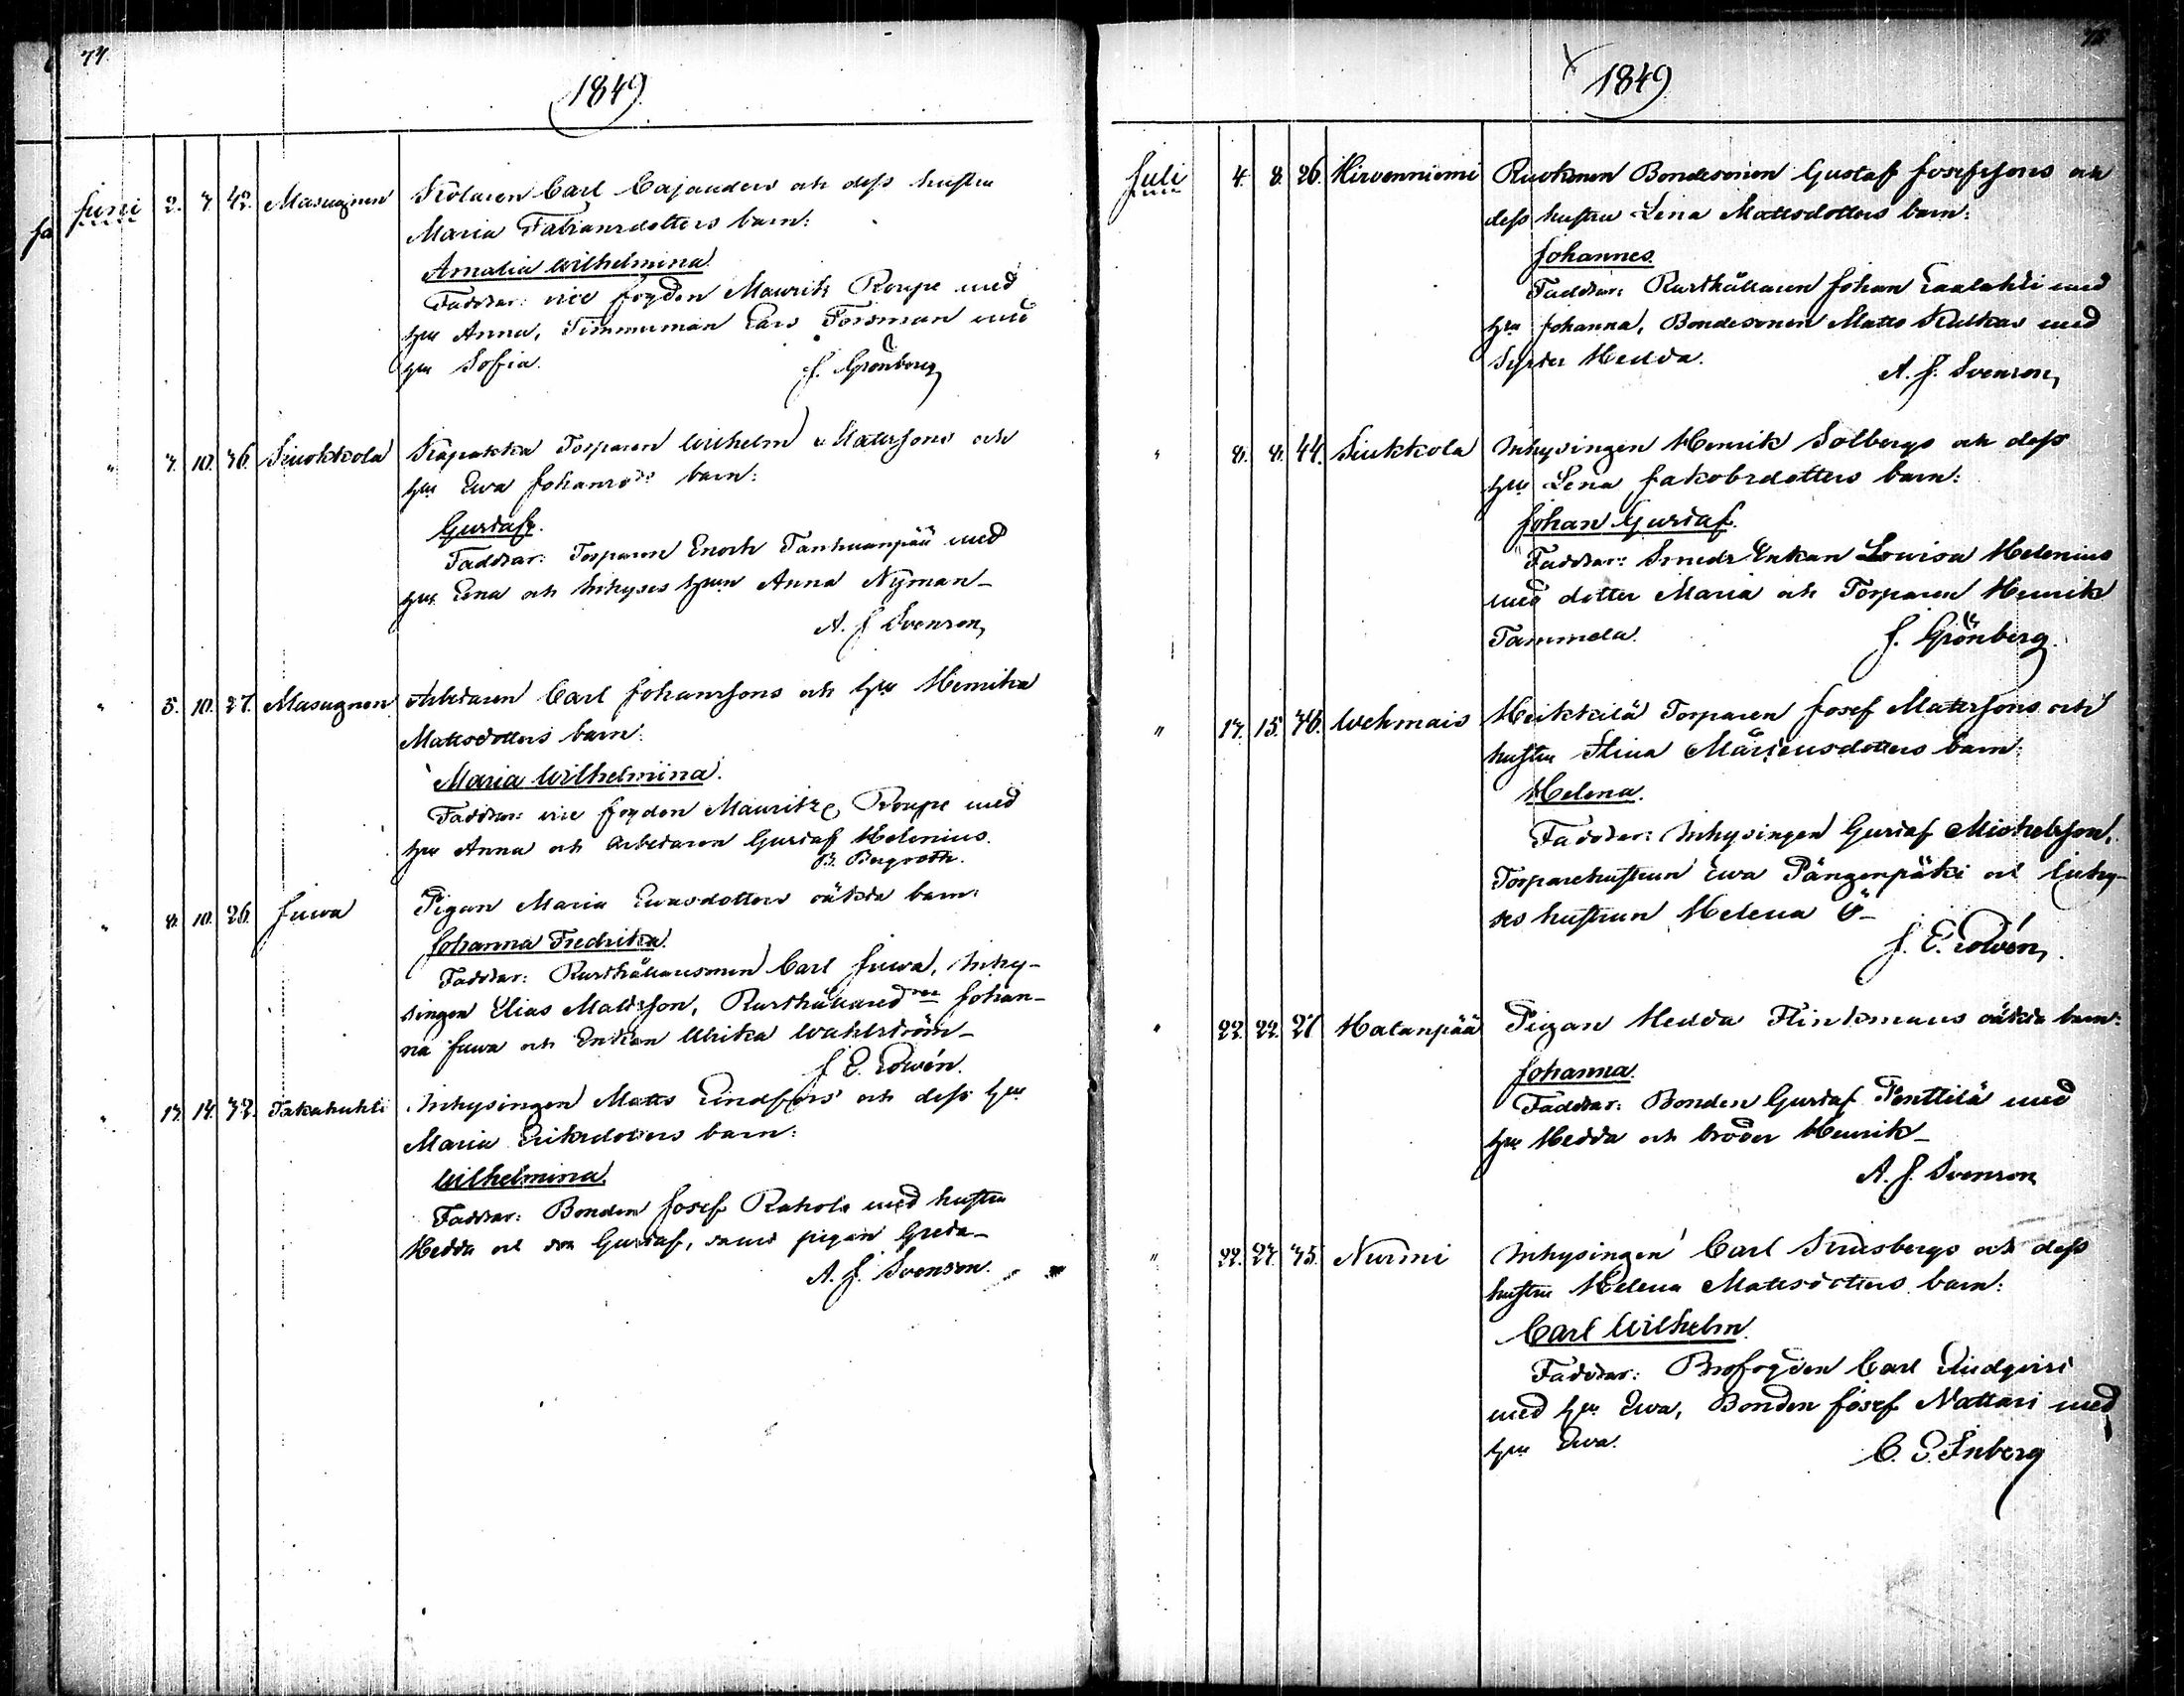 74.
1849.
Juni 2. 7. 42. Masugnen Kolaren Carl Cajanders och dess hustru
Maria Fabiansdotters barn:
Amalia Wilhelmina.
Faddrar: vice fogden Mauritz Roupe med
hru Anna, Timmerman Lars Forsman med
hru Sofia.
J. Grönberg
" 7. 10. 36. Siuokkola Torparen Wilhelm Mattssons och
hru Ewa Johansdrs barn:
Gustaf.
Faddrar: Torparen Enoch Tanhuanpää med
hru Lena och Inhyses hrun Anna Nyman_
A. J. Svenson,
" 5. 10. 27. Masugnen Arbetaren Carl Johanssons och hru Henrika
Mattsdotters barn:
Maria Wilhelmina.
Faddrar: vice fogden Mauritz Roupe med
hru Anna och arbetaren Gustaf Helenius.
B. Bergroth.
" 8. 10. 26. Juwa Pigan Maria Ewasdotters oäkta barn:
Johanna Fredrika.
Faddrar: Rusthållaresonen Carl Juwa, Inhy-
singen Elias Mattsson, Rusthållaredran Johan-
na Juwa och Enkan Ulrika Wahlström_
J. E. Lovén.
" 13. 14. 32. Takahuhti Inhysingen Matts Lindfors och dess hru
Maria Eriksdotters barn:
Wilhelmina.
Faddrar: Bonden Josef Rahola med hustru
Hedda och son Gustaf, samt pigan Greta_
A. J. Svenson.
75.
1849
Juli 4. 8. 26. Hirvenniemi Ruokonen Bondesonen Gustaf Josefssons och
dess hustru Lena Mattsdotters barn:
Johannes.
Faddrar: Rusthållaren Johan Laalahti med
hru Johanna, Bondesonen Matts Kulkas med
Syster Hedda.
A. J. Svenson,
" 8. 8. 44. Siukkola Inhysingen Henrik Solbergs och dess
hru Lena Jakobsdotters barn:
Johan Gustaf.
Faddrar: Smeds Enkan Lowisa Helenius
med dotter Maria och Torparen Henrik
Tammela.
J. Grönberg.
" 13. 15. 36. Wehmais Heikkilä Torparen Josef Mattssons och
hustru Stina Mårtensdotters barn:
Helena.
Faddrar: Inhysingen Gustaf Michelsson,
Torparehustrun Ewa och Inhy-
ses hustrun Helena Ö_
J. E. Lovén,
" 22. 22. 27 Hatanpää Pigan Hedda Flinkmans oäkta barn:
Johanna.
Faddrar: Bonden Gustaf Penttilä med
hru Hedda och broder Henrik_
A. J. Svenson
" 22. 23. 35. Nurmi Inhysingen Carl och dess
hustru Helena Mattsdotters barn:
Carl Wilhelm.
Faddrar: Brofogden Carl Lindqvist
med hru Ewa, Bonden Josef Nattari med
hru Ewa.
C. G. Inberg